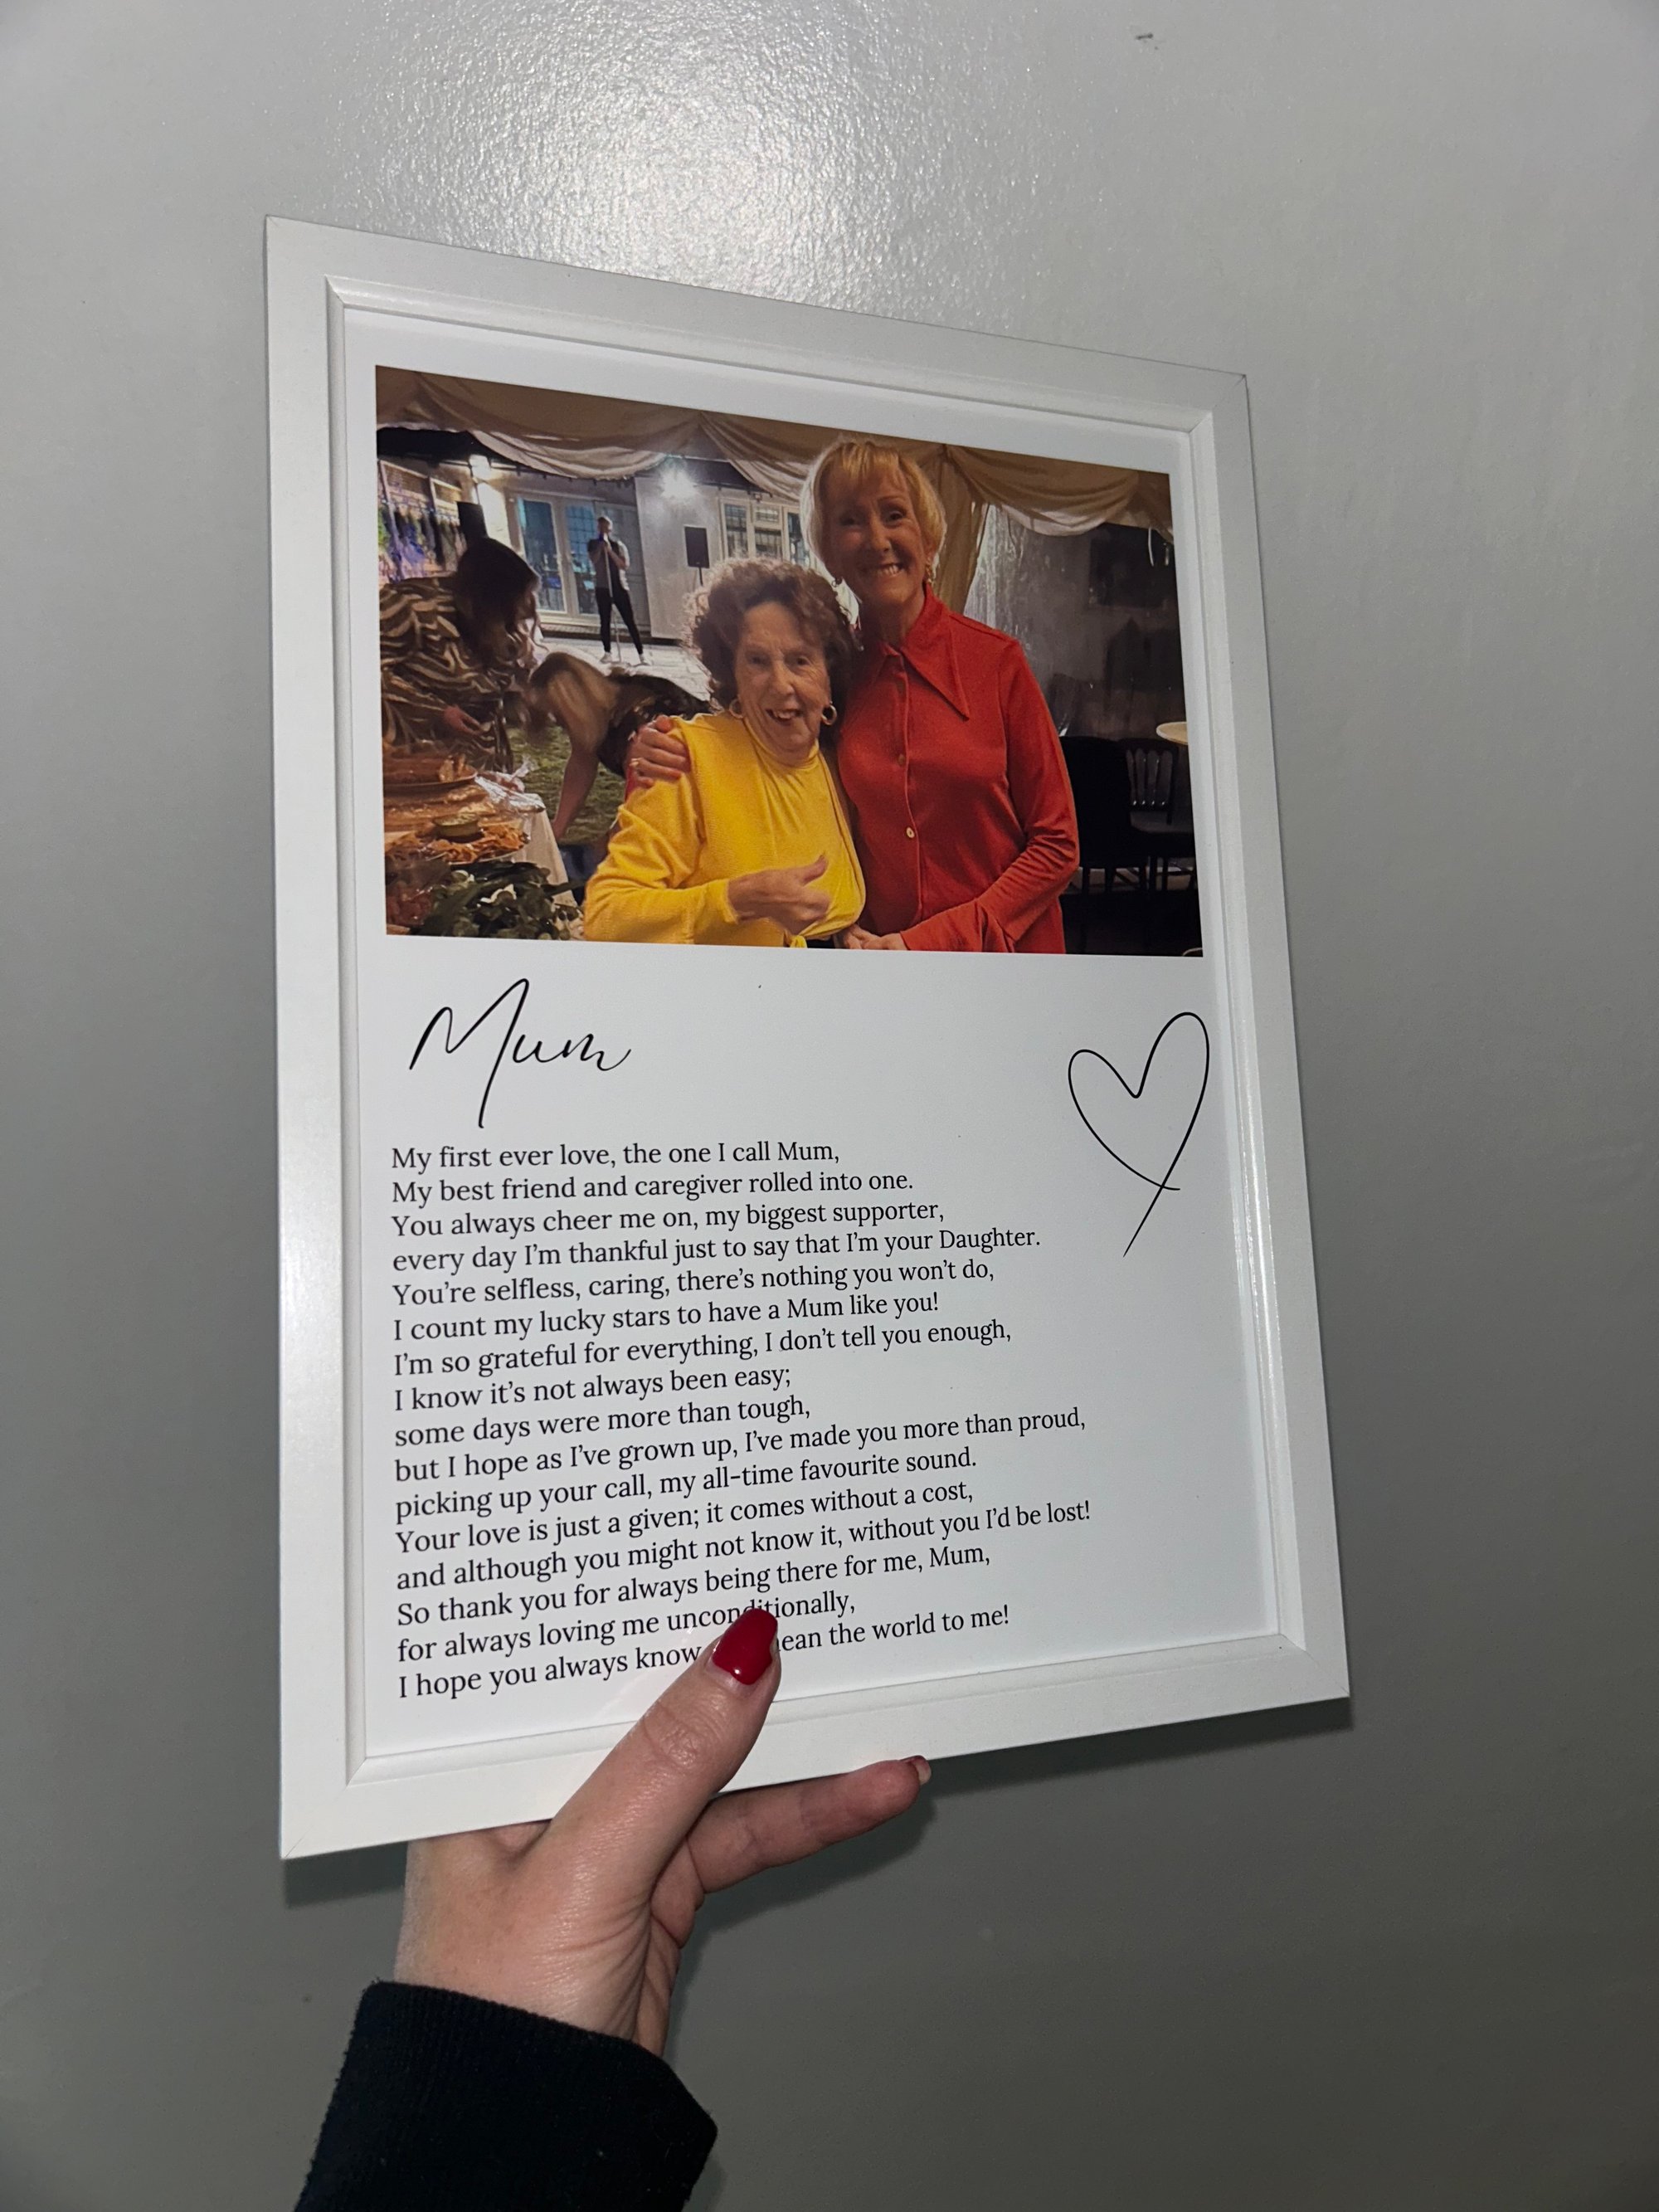 Mum
My first ever love, the one I call Mum,
My best friend and caregiver rolled into one.
You always cheer me on, my biggest supporter,
every day I'm thankful just to say that I'm your Daughter.
You're selfless, caring, there's nothing you won't do,
I count my lucky stars to have a Mum like you!
I'm so grateful for everything, I don't tell you enough,
I know it's not always been easy;
some days were more than tough,
but I hope as I've grown up, I've made you more than proud,
picking up your call, my all-time favourite sound.
Your love is just a given; it comes without a cost,
and although you might not know it, without you I'd be lost!
So thank you for always being there for me, Mum,
for always loving me unconditionally,
I hope you always know the world to me!